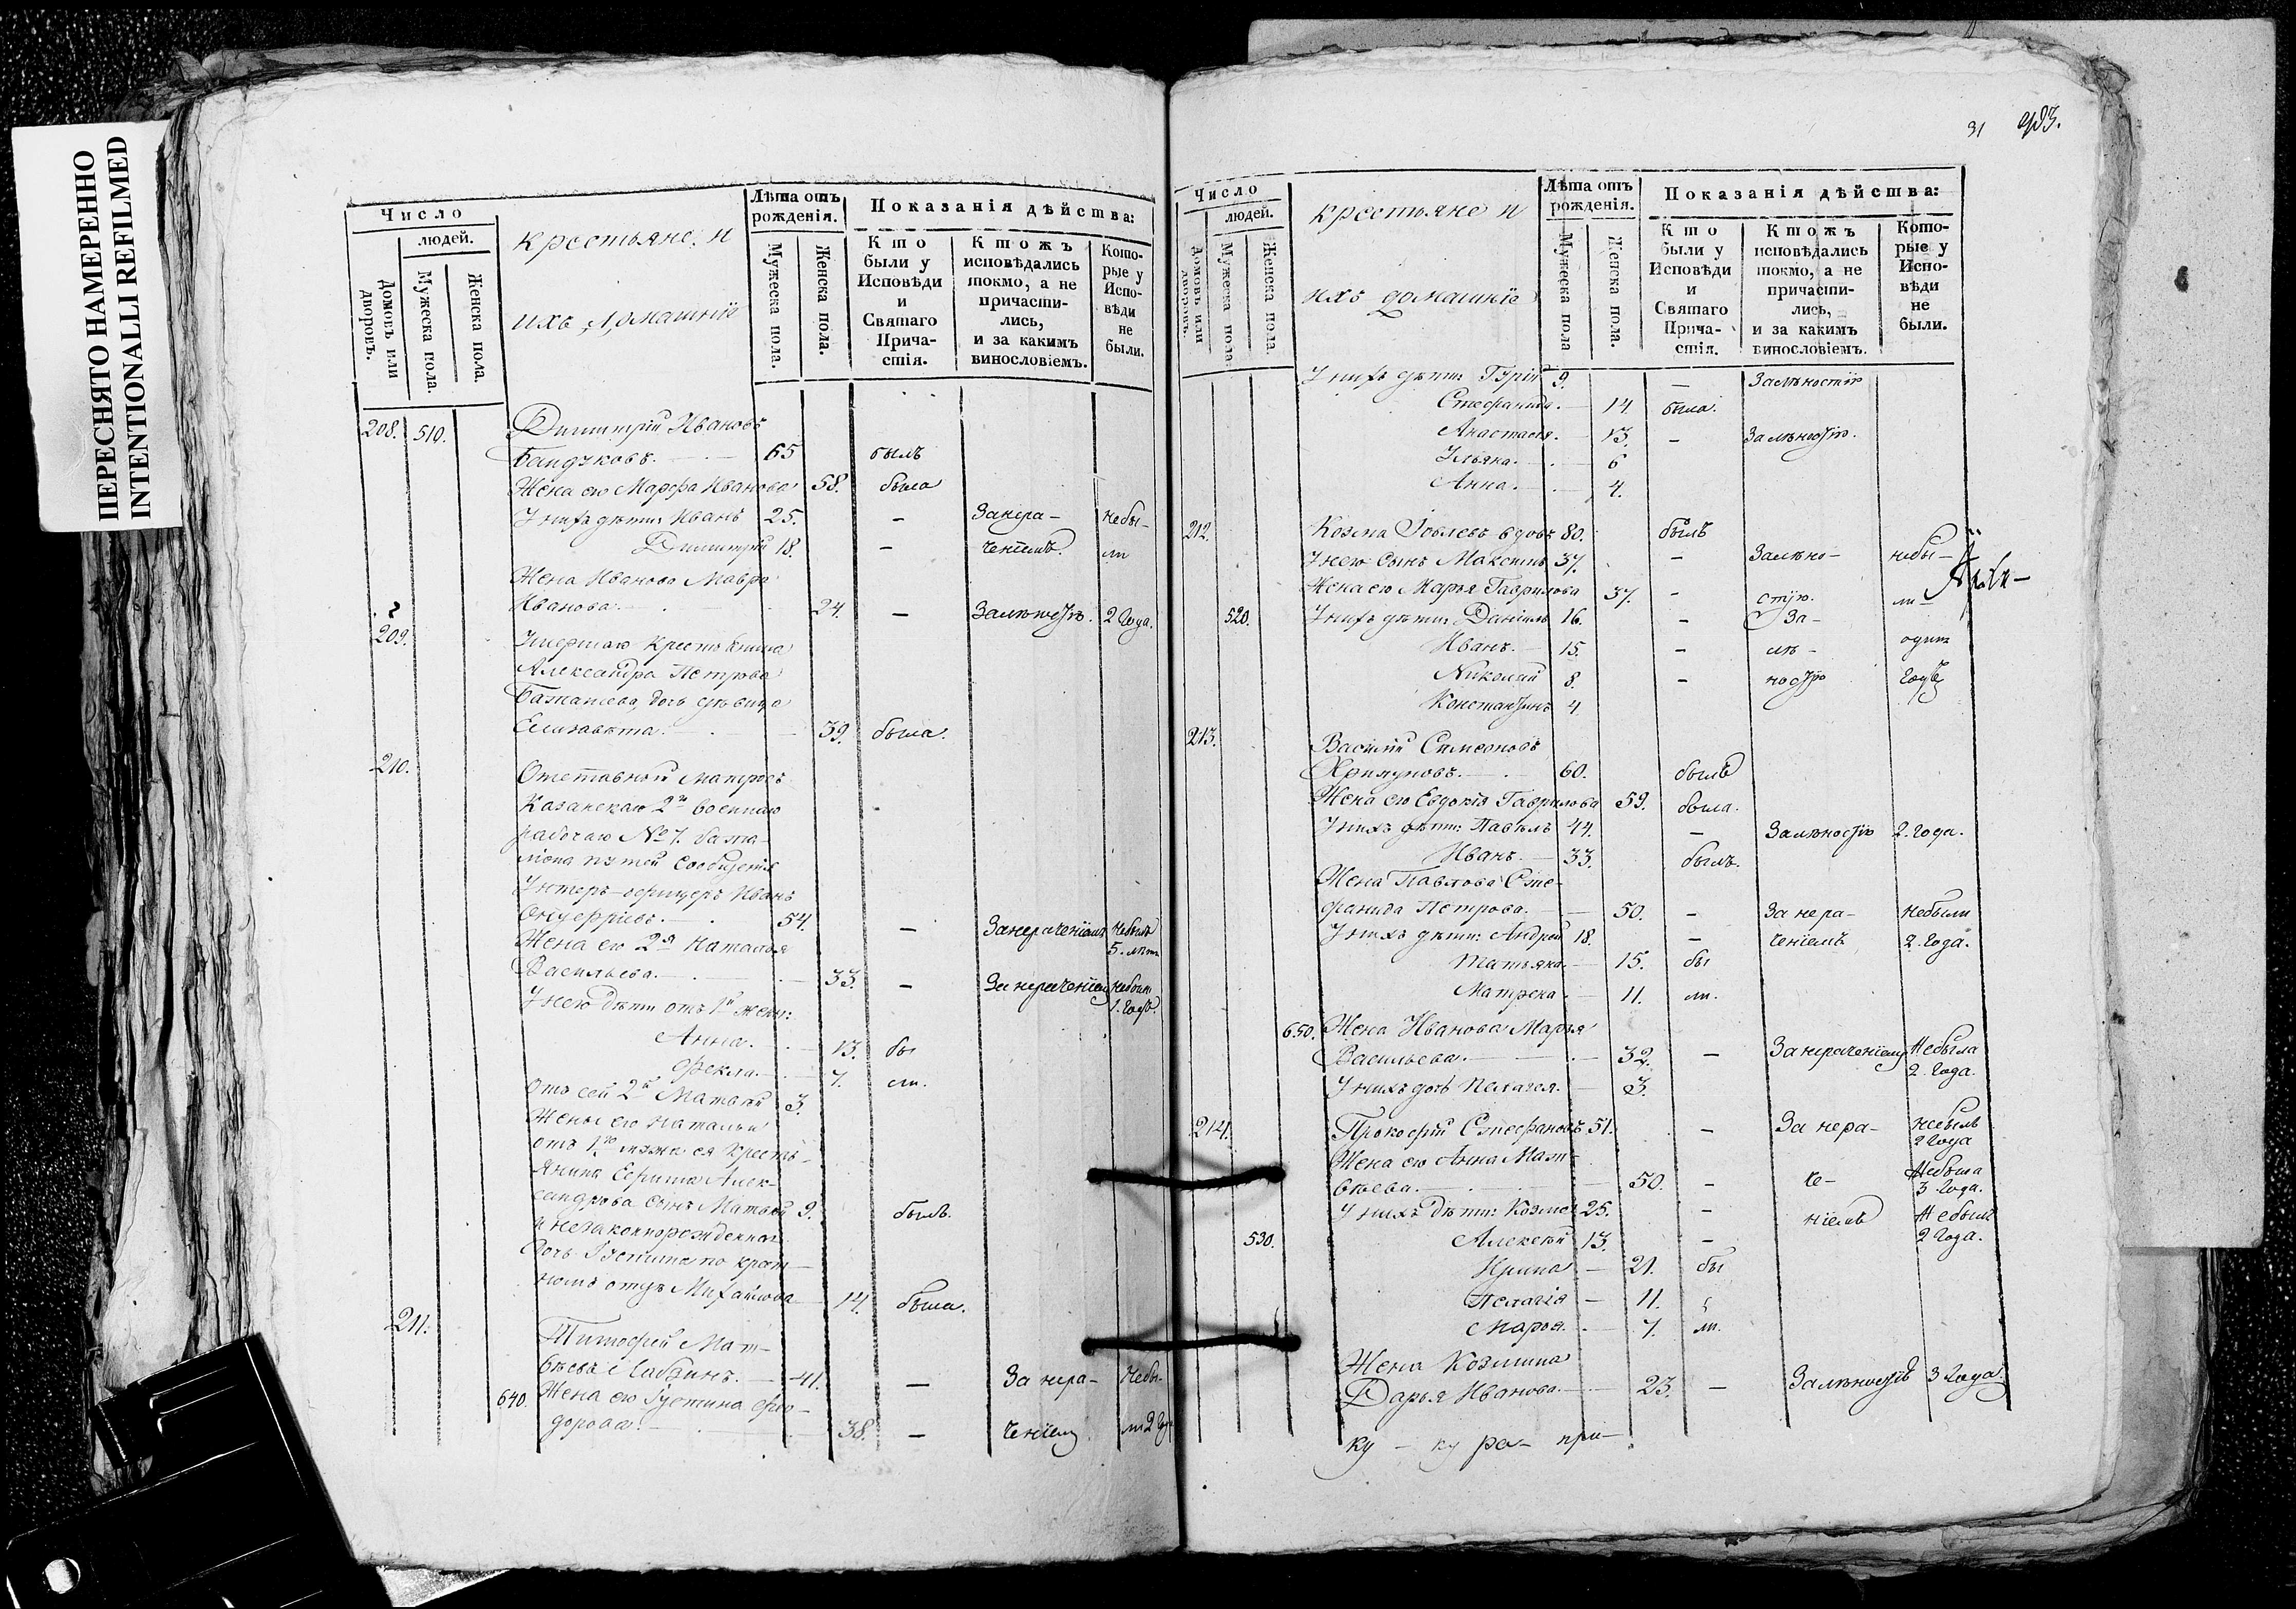 ПЕРЕСНЯТО НАМЕРЕННО
INTENTIONALLI REFILMED
Число
людей.
Домовъ или дворовъ.
Мужеска пола.
Женска пола.
крестьяне и
ихъ домашнiе
Лѣта отъ рожденiя.
Мужеска пола.
Женска пола.
Показанiя дѣйства:
Кто были у Исповѣди и Святаго Причастiя.
Ктожъ исповѣдались токмо, а не причастились, и за какимъ винословiемъ.
Которые у Исповѣди не были.
208. 510. Димитрiй Ивановъ
65 былъ
Жена его Марфа Иванова 58. была
У нихъ дѣти: Иванъ 25. — За нера- не бы-
Димитрiй 18. — ченiемъ. ли
Жена Иванова Мавра
Иванова. 24. — За лѣностiю. 2 года.
209. Умершаго крестьянина
Александра Петрова
дочь дѣвица
Елизавета. 39. была.
210. Отставный матросъ
Казанскаго 2го военнаго
рабочаго № 7. бата-
лiона путей сообщенiя
Унтеръ-офицеръ Иванъ
54. — За нераченiемъ не былъ
Жена его 2я Наталья 5. лѣтъ
Васильева. 33. — За нераченiемъ не была
У него дѣти отъ 1й жены: 1. годъ.
Анна. 13. бы
Фекла. 7. ли.
Отъ сей 2й Матвѣй 3.
Жены его Натальи
отъ 1го мужа ея кресть-
янина Ефима Алек-
сандрова сынъ Матвѣй 9. былъ.
и незаконнорожденная
дочь Густина по крест-
номъ отцѣ Михайлова 14. была.
211. Тимофей Мат-
вѣевъ 41. — За нера- не бы-
640. Жена его Густина Фео-
дорова. 38. — ченiемъ ли 2 года
31 983.
Число
людей.
Домовъ или дворовъ.
Мужеска пола
Женска пола.
крестьяне и
ихъ домашнiе
Лѣта отъ рожденiя.
Мужеска пола
Женска пола.
Показанiя дѣйства:
Кто были у Исповѣди и Святаго Причастiя.
Ктожъ исповѣдались токмо, а не причастились, и за какимъ винословiемъ.
Которые у Исповѣди не были.
У нихъ дѣти: Гурiй 9. — За лѣностiю
Стефанида. 14. была.
Анастасiя. 13. — За лѣностiю.
Ульяна. 6
Анна. 4.
212. Козма вдовъ 80. былъ
У него сынъ Максимъ 37. — За лѣно- не бы-
Жена его Марья Гаврилова 37. — стiю. ли —
520. У нихъ дѣти: Данiилъ 16. — За-
Иванъ. 15. — лѣ- одинъ
Николай 8. — ностiю годъ
Константинъ 4.
213. Василiй Симеоновъ
60. былъ
Жена его Евдокiя Гаврилова 59. была.
У нихъ дѣти: Павелъ 44. — За лѣностiю 2. года.
Иванъ. 33. былъ.
Жена Павлова Сте-
фанида Петрова. 50. — За нера- не были
У нихъ дѣти: Андрей 18. — ченiемъ 2. года.
Татьяна. 15. бы
Матрена. 11. ли.
650. Жена Иванова Марья
Васильева. 32. — За нераченiемъ Не была
2. года.
У нихъ дочь Пелагея. 3.
214. Прокофiй Стефановъ 51. — За нера- не былъ
2 года
Жена его Анна Мат-
вѣева. 50. — че- Не была
3 года.
У нихъ дѣти: Козма 25. — нiемъ Не былъ
530. Алексѣй 13. — 2 года.
Ирина 21. бы
Пелагiя 11.
Марья. 7. ли.
Жена Козмина
Дарья Иванова. 23. — За лѣностiю 3 года.
ку – ку ра– при–